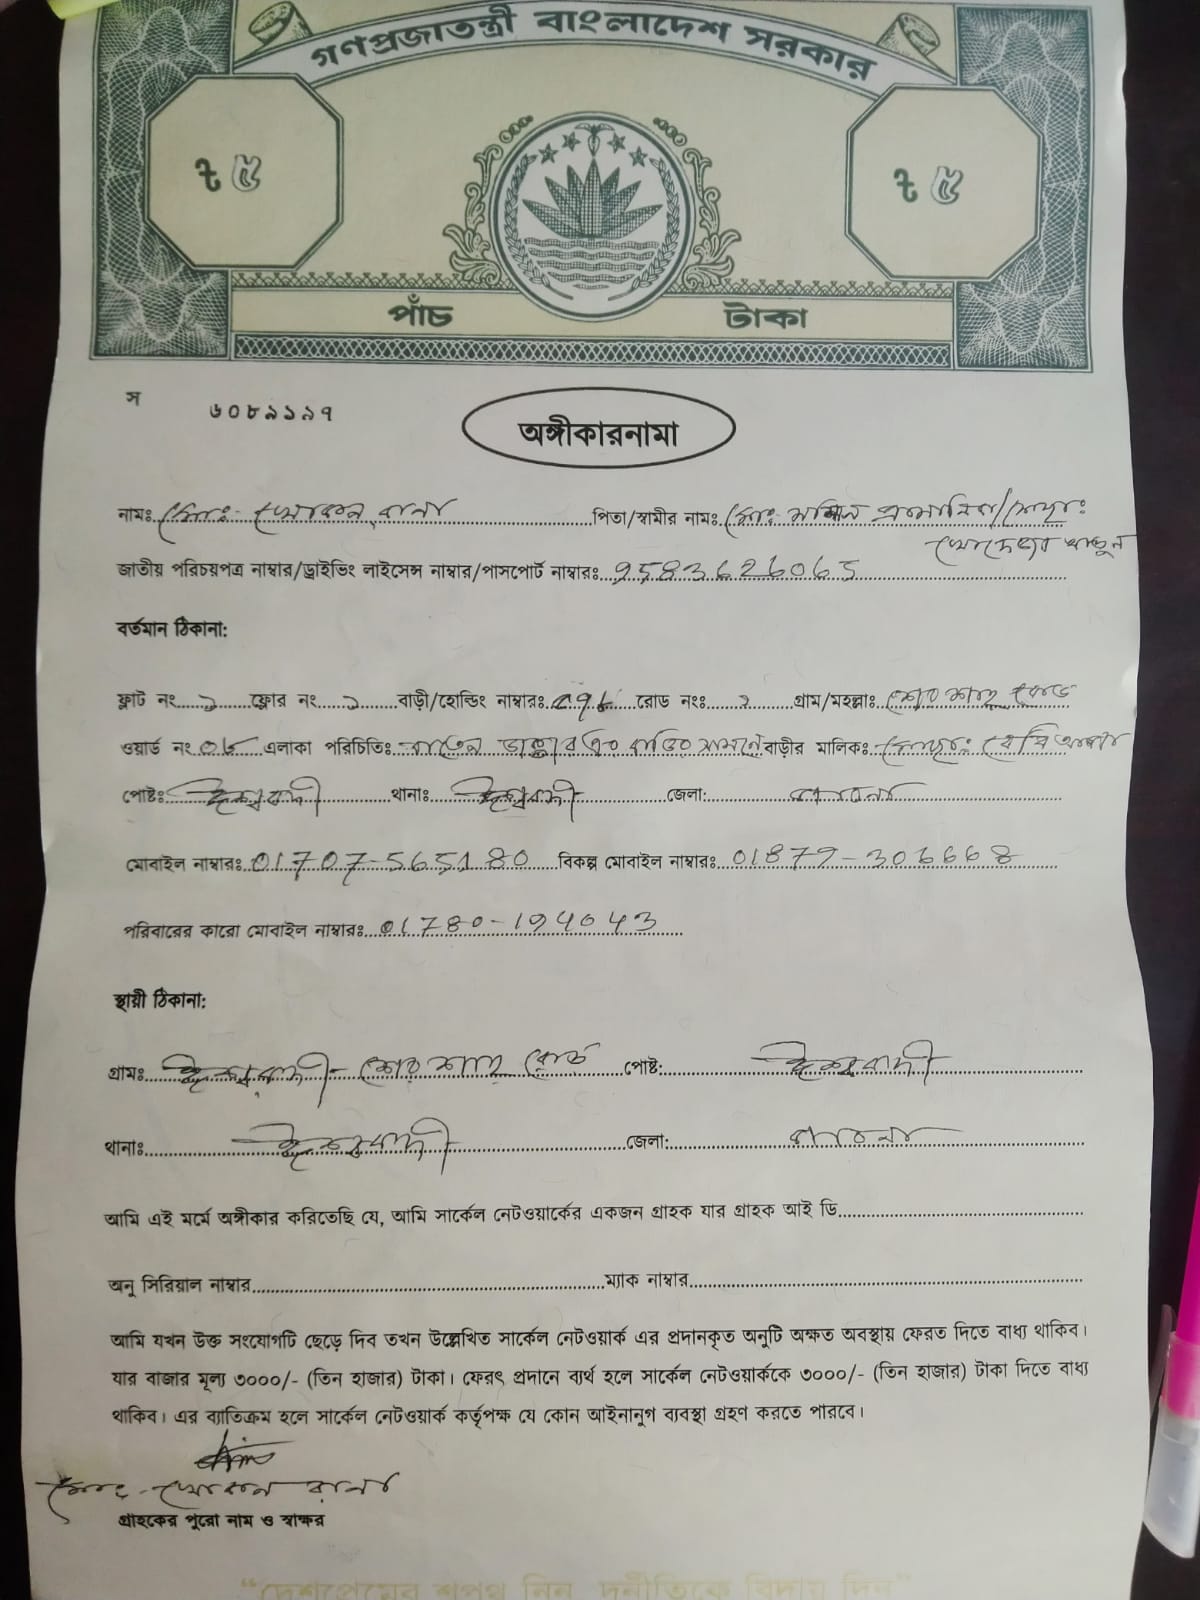 গণপ্রজাতন্ত্রী বাংলাদেশ সরকার
৳ ৫ ৳ ৫
পাঁচ টাকা
স ৬০৮৯১৯৭
অঙ্গীকারনামা
নামঃ মোঃ- খোকন রানা পিতা/স্বামীর নামঃ মোঃ প্রামানিক/মোছাঃ
খাতুন
জাতীয় পরিচয়পত্র নাম্বার/ড্রাইভিং লাইসেন্স নাম্বার/পাসপোর্ট নাম্বারঃ 9583626065
বর্তমান ঠিকানা:
ফ্লাট নং ১ ফ্লোর নং ১ বাড়ী/হোল্ডিং নাম্বারঃ রোড নংঃ ২ গ্রাম/মহল্লাঃ শের শাহ রোড
ওয়ার্ড নং এলাকা পরিচিতিঃ ডাক্তার এর বাড়ির সামনে বাড়ীর মালিকঃ মোছাঃ
পোষ্টঃ ঈশ্বরদী থানাঃ ঈশ্বরদী জেলা: পাবনা
মোবাইল নাম্বারঃ 01707-565180 বিকল্প মোবাইল নাম্বারঃ 01879-306668
পরিবারের কারো মোবাইল নাম্বারঃ 01780-194043
স্থায়ী ঠিকানা:
গ্রামঃ ঈশ্বরদী- শের শাহ রোড পোষ্ট: ঈশ্বরদী
থানাঃ ঈশ্বরদী জেলা: পাবনা
আমি এই মর্মে অঙ্গীকার করিতেছি যে, আমি সার্কেল নেটওয়ার্কের একজন গ্রাহক যার গ্রাহক আই ডি
অনু সিরিয়াল নাম্বার ম্যাক নাম্বার
আমি যখন উক্ত সংযোগটি ছেড়ে দিব তখন উল্লেখিত সার্কেল নেটওয়ার্ক এর প্রদানকৃত অনুটি অক্ষত অবস্থায় ফেরত দিতে বাধ্য থাকিব।
যার বাজার মূল্য ৩০০০/- (তিন হাজার) টাকা। ফেরৎ প্রদানে ব্যর্থ হলে সার্কেল নেটওয়ার্ককে ৩০০০/- (তিন হাজার) টাকা দিতে বাধ্য
থাকিব। এর ব্যাতিক্রম হলে সার্কেল নেটওয়ার্ক কর্তৃপক্ষ যে কোন আইনানুগ ব্যবস্থা গ্রহণ করতে পারবে।
মোঃ - খোকন রানা
গ্রাহকের পুরো নাম ও স্বাক্ষর
“দেশপ্রেমের শপথ নিন, দুর্নীতিকে বিদায় দিন”